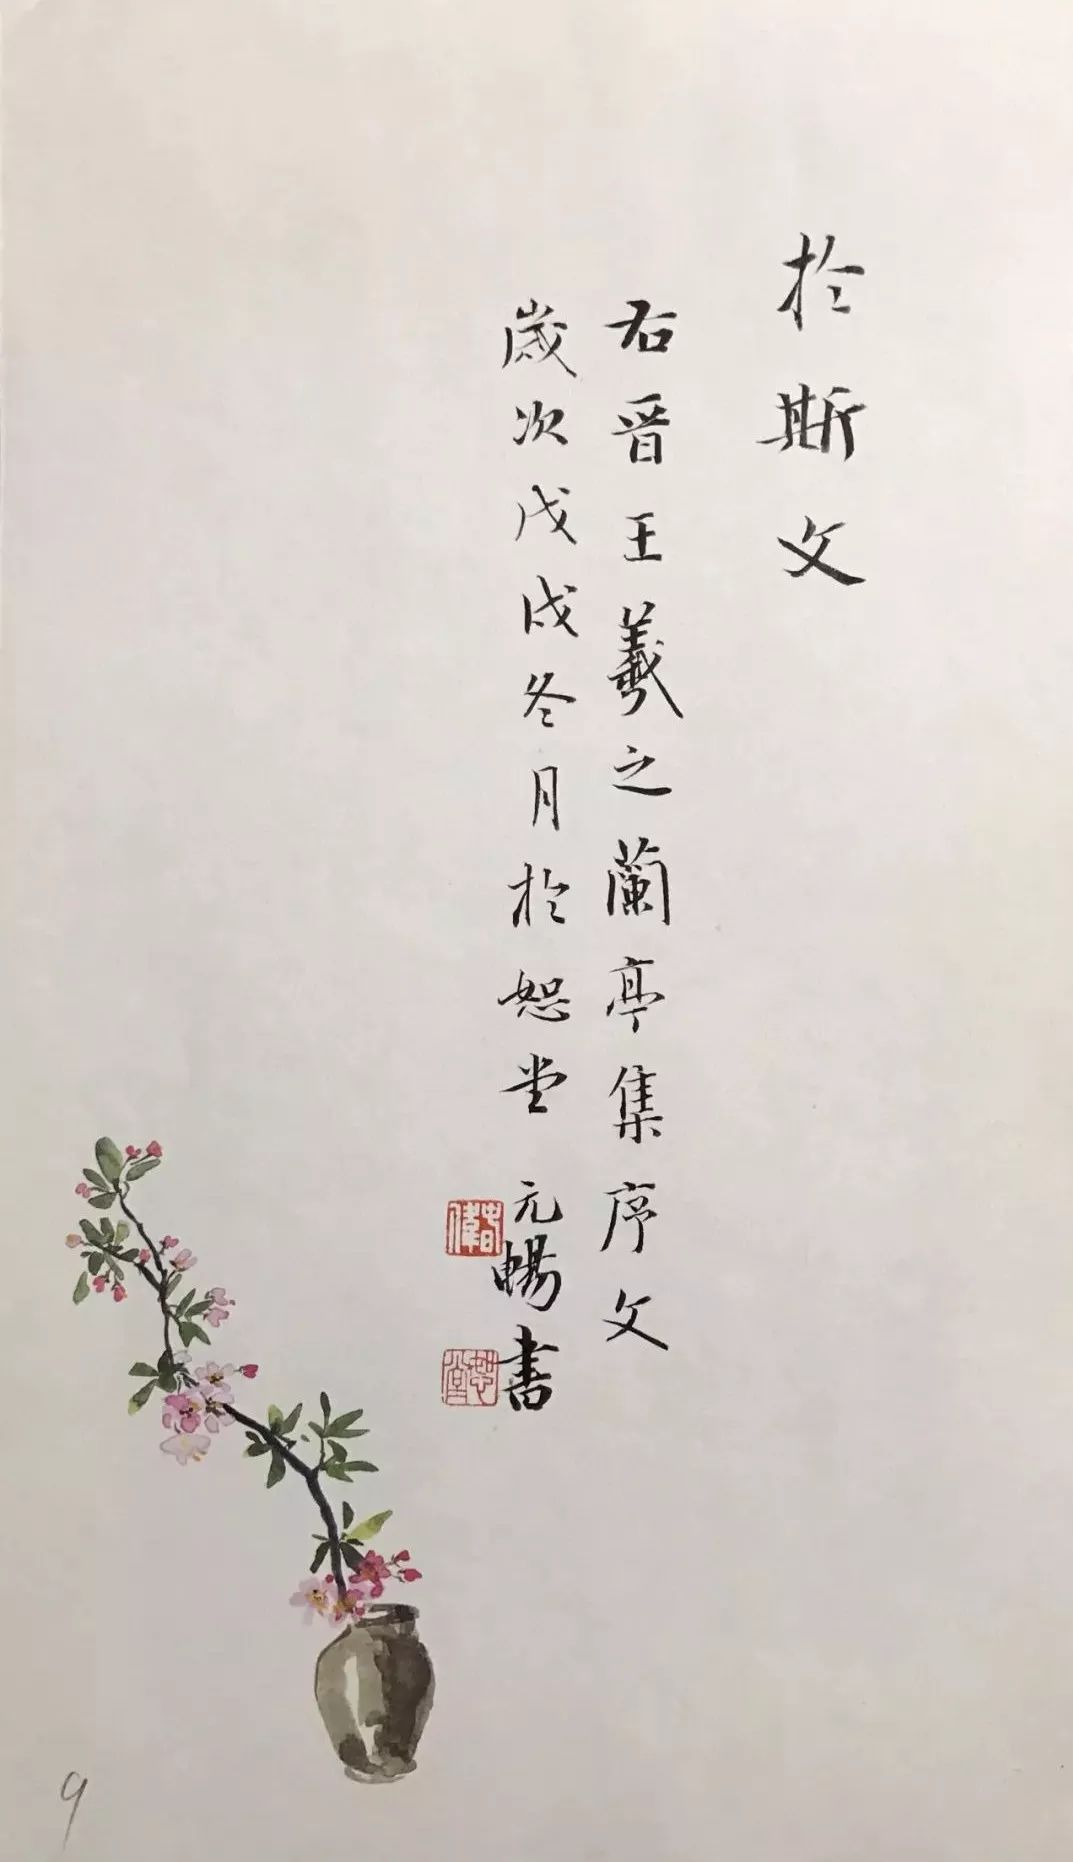 於斯文
右晉王羲之蘭亭集序文
歲次戊戌冬月於恕堂
元暢書
恕堂
9